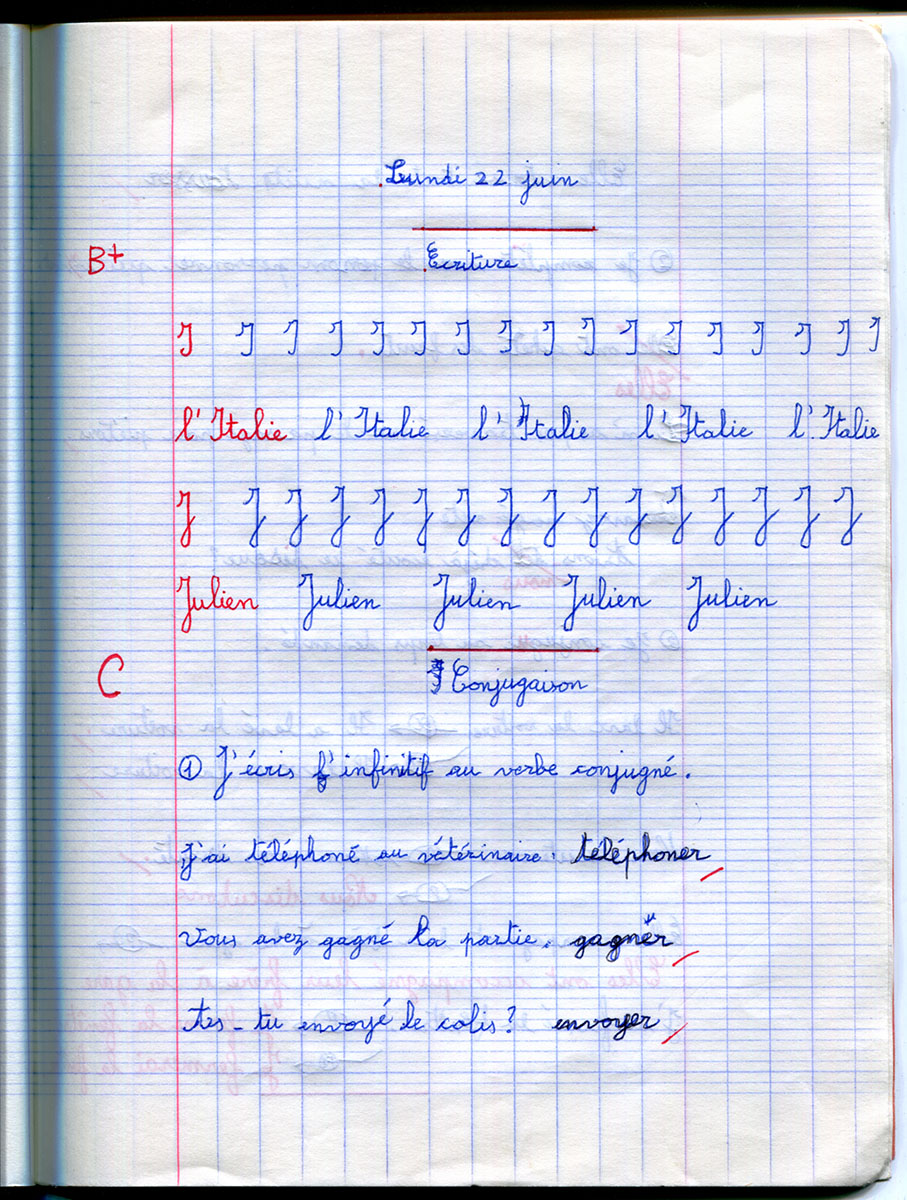 Lundi 22 juin
B+
Ecriture
I I I I I I I I I I I I I I I I I
l'Italie l'Italie l'Italie l'Italie l'Italie
J J J J J J J J J J J J J J J J
Julien Julien Julien Julien Julien
C
Conjugaison
① J'écris l'infinitif au verbe conjugné.
J'ai téléphoné au vétérinaire. téléphoner
Vous avez gagné la partie. gagner
As-tu envoyé le colis ? envoyer